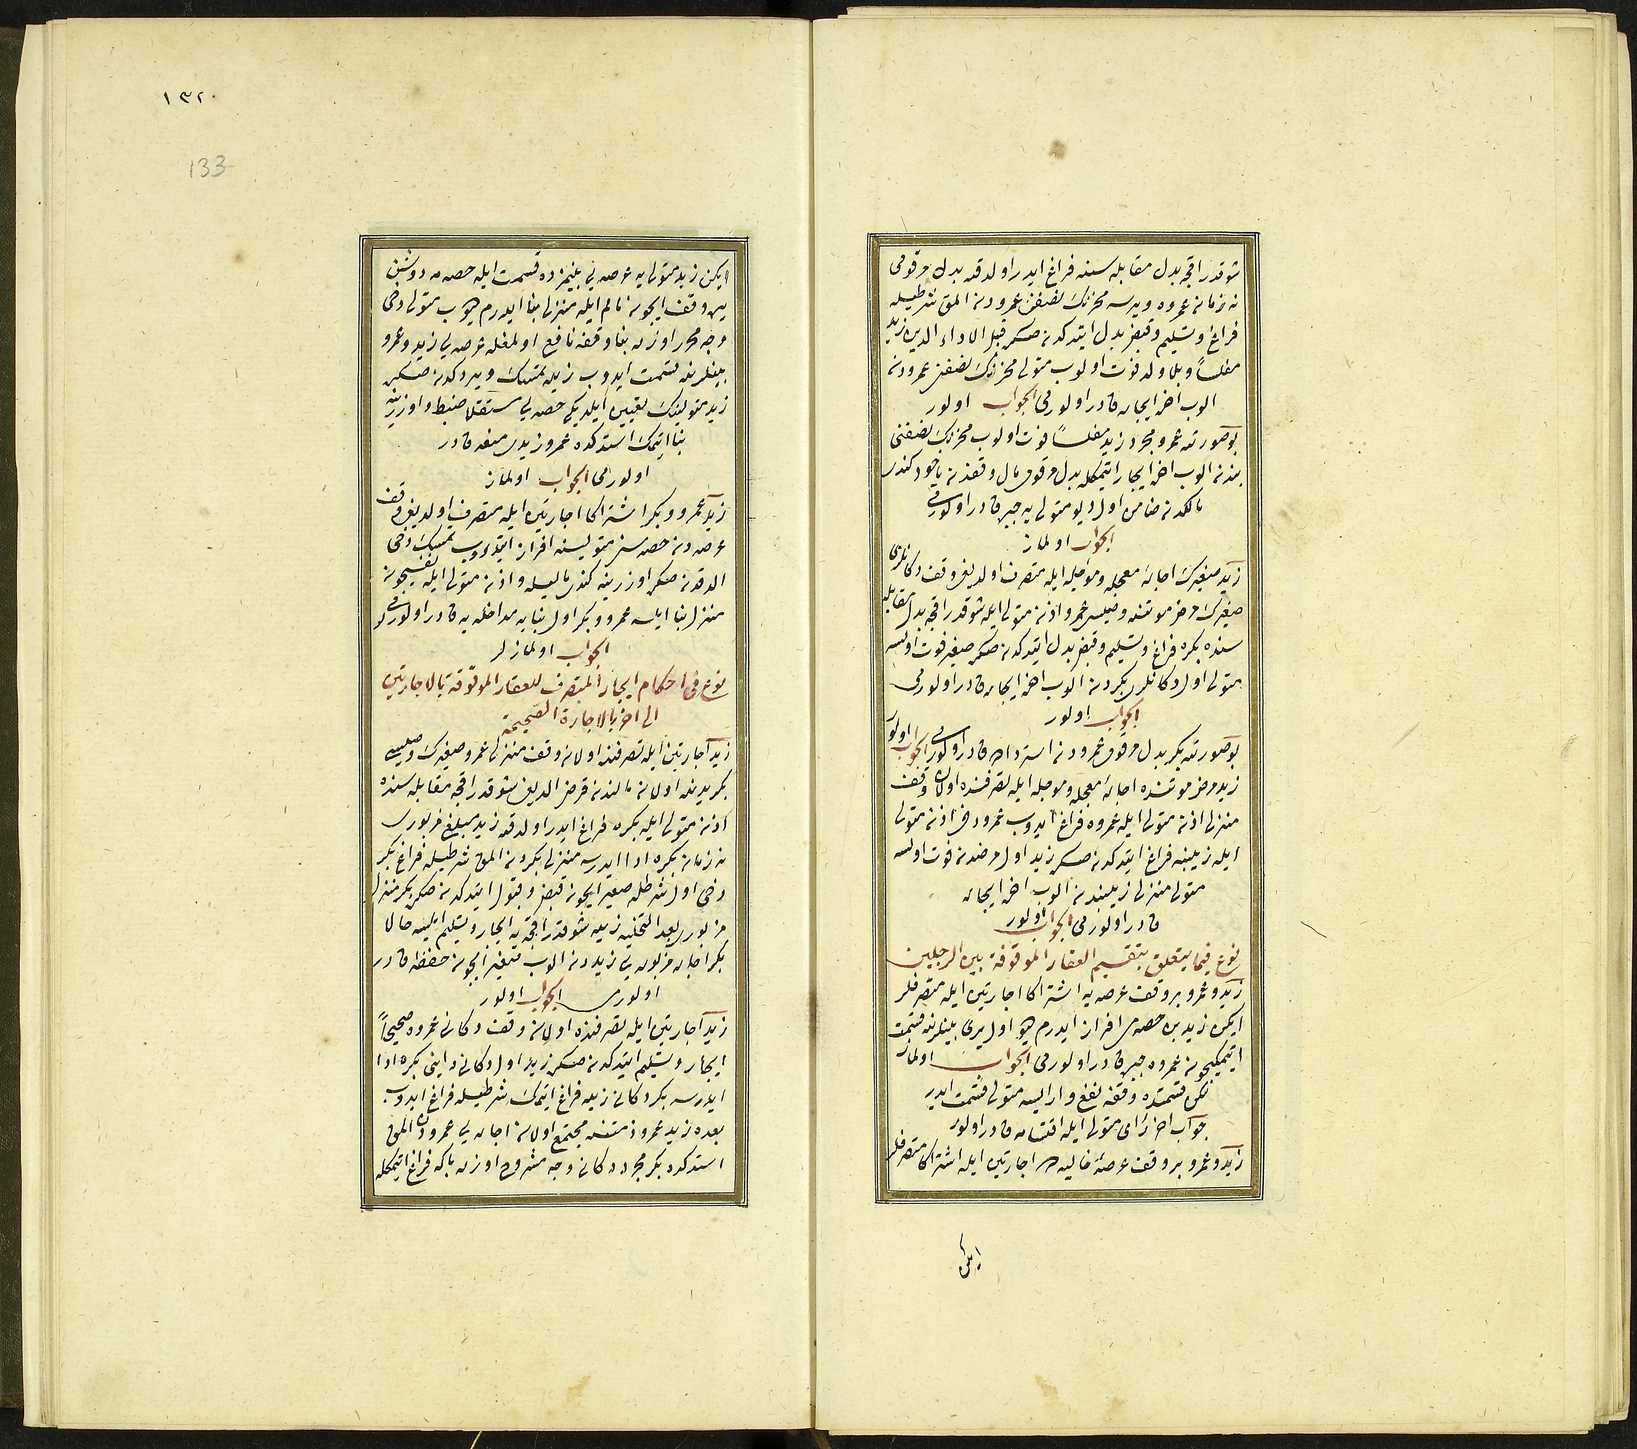 شوقدر اقچه بدل مقابله‌سنده فراغ ایدر اولدقده بدل مرقومی
نه زمان عمروه ویررسه مخزنك نصفنی عمرودن المق شرطیله
فراغ و تسلیم و قبض بدل ایتدکدن صکره قبل الاداء الدین زید
مفلساً وبلا ولد فوت اولوب متولی مخزنك نصفنی عمرودن
الوب اخره ایجاره قادر اولورمی الجواب اولور
بوصورتده عمرو مجرد زید مفلساً فوت اولوب مخزنك نصفنی
بندن الوب اخره ایجار ایتمکله بدل مرقومی مال وقفدن یاخود کندی
مالکدن ضامن اول دیو متولی‌یه جبره قادر اولورمی
الجواب اولماز
زید صغیرك اجارهٔ معجله و مؤجله ایله متصرف اولدیغی وقف دکانلری
صغیرك مرض موتنده وصیسی عمرو اذن متولی ایله شوقدر اقچه بدل مقابله
سنده بکره فراغ و تسلیم و قبض بدل ایتدکدن صکره صغیر فوت اولسه
متولی اول دکانلری بکردن الوب اخره ایجاره قادر اولورمی
الجواب اولور
بوصورتده بکر بدل مرقومی عمرودن استرداده قادر اولورمی الجواب اولور
زید مرض موتنده اجارهٔ معجله و مؤجله ایله تصرفنده اولان وقف
منزلی اذن متولی ایله عمروه فراغ ایدوب عمرو دخی اذن متولی
ایله زینبه فراغ ایتدکدن صکره زید اول مرضدن فوت اولسه
متولی منزلی زینبدن الوب اخره ایجاره
قادر اولورمی الجواب اولور
نوع فیما یتعلق بتقسیم العقار الموقوفة بین الرجلین
زید و عمرو بر وقف عرصه‌یه اشتراکا اجارتین ایله متصرفلر
ایکن زید بن حصه‌می افراز ایدرم دیو اول یری بینلرنده قسمت
ایتمکیچون عمروه جبره قادر اولورمی الجواب اولماز
لکن قسمتده وقفه نفع وار ایسه متولی قسمت ایدر
جواب اخر رای متولی ایله اقتسامه قادر اولور
زید و عمرو بر وقف عرصهٔ خالیه‌یه اجارتین ایله اشتراکا متصرفلر
ایکن
١٣٢
133
ایکن زید متولی‌یه عرصه‌یی بینمزده قسمت ایله حصه‌مه دوشن
یره وقف ایچون مالم ایله منزل بنا ایدرم دیوب متولی دخی
وجه محرر اوزره بنا وقفه نافع اولمغله عرصه‌یی زید و عمرو
بینلرنده قسمت ایدوب زیده تمسك ویردکدن صکره
زید متولینك تعیین ایلدیکی حصه‌یی مستقلا ضبط و اوزرینه
بنا ایتمك استدکده عمرو زیدی منعه قادر
اولورمی الجواب اولماز
زید عمرو و بکر اشتراکا اجارتین ایله متصرف اولدیغی وقف
عرصه‌دن حصه‌سنی متولیسنه افراز ایتدیروب تمسك دخی
الدقدن صکره اوزرینه کندی مالیله و اذن متولی ایله نفسیچون
منزل بنا ایلسه عمرو و بکر اول بنایه مداخله‌یه قادر اولورلرمی
الجواب اولمازلر
نوع فی احکام ایجار المتصرف للعقار الموقوفة بالاجارتین
الی اخر بالاجارة الصحیحة
زید اجارتین ایله تصرفنده اولان وقف منزلی عمرو صغیرك وصیسی
بکر یدنده اولان مالندن قرض الدیغی شوقدر اقچه مقابله‌سنده
اذن متولی ایله بکره فراغ ایدر اولدقده زید مبلغ مزبوری
نه زمان بکره ادا ایدرسه منزلی بکردن المق شرطیله فراغ بکر
دخی اول شرطله صغیر ایچون قبض و قبول ایتدکدن صکره بکر منزل
مزبوری بعد التخلیه زیده شوقدر اقچه‌یه ایجار و تسلیم ایلسه حالا
بکر اجاره مزبوره‌یی زیددن الوب صغیر ایچون حفظه قادر
اولورمی الجواب اولور
زید اجارتین ایله تصرفنده اولان وقف دکانی عمروه صحیحاً
ایجار و تسلیم ایتدکدن صکره زید اول دکانی داینی بکره ادا
ایدرسه بکر دکانی زیده فراغ ایتمك شرطیله فراغ ایدوب
بعده زید عمرو ذمتنده مجتمع اولان اجاره‌یی عمرودن المق
استدکده بکر مجرد دکانی وجه مشروح اوزره باکه فراغ ایتمکله